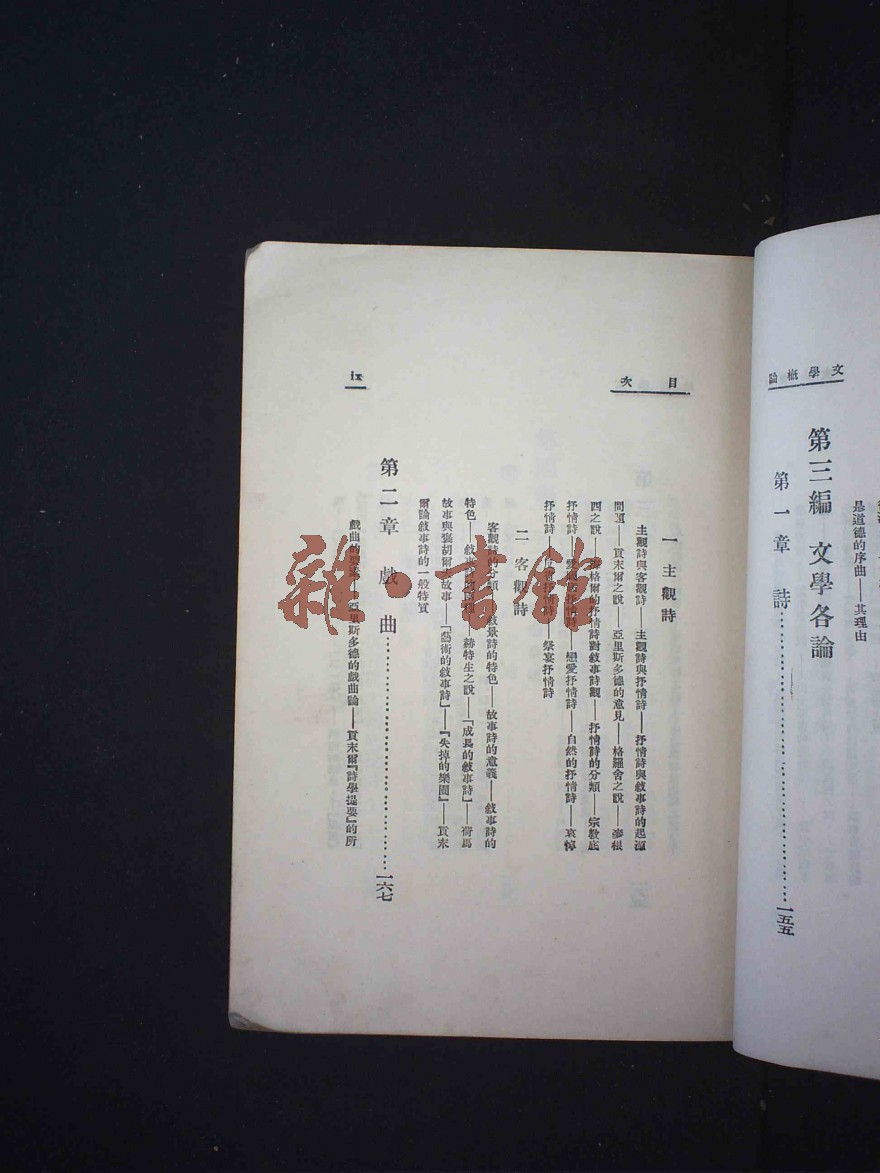 文學概論
是道德的序曲——其理由
第三編　文學各論
第一章　詩……一五五
目次
一　主觀詩
主觀詩與客觀詩——主觀詩與抒情詩——抒情詩與敍事詩的起源
問題——貢末爾之說——亞里斯多德的意見——格羅舍之說——
西之說——格爾的抒情詩對敍事詩觀——抒情詩的分類——宗教底
抒情詩——愛國底抒情詩——戀愛抒情詩——自然的抒情詩——哀悼
抒情詩——抒情詩——祭宴抒情詩
二　客觀詩
客觀詩的分類——敍景詩的特色——故事詩的意義——敍事詩的
特色——敍事詩的——赫特生之說——「成長的敍事詩」——荷馬
故事與裴胡爾故事——「藝術的敍事詩」——『失掉的樂園』——貢末
爾論敍事詩的一般特質
第二章　戲曲……一六七
戲曲的要素——亞里斯多德的戲曲論——貢末爾『詩學提要』的所
ix
雜·書館